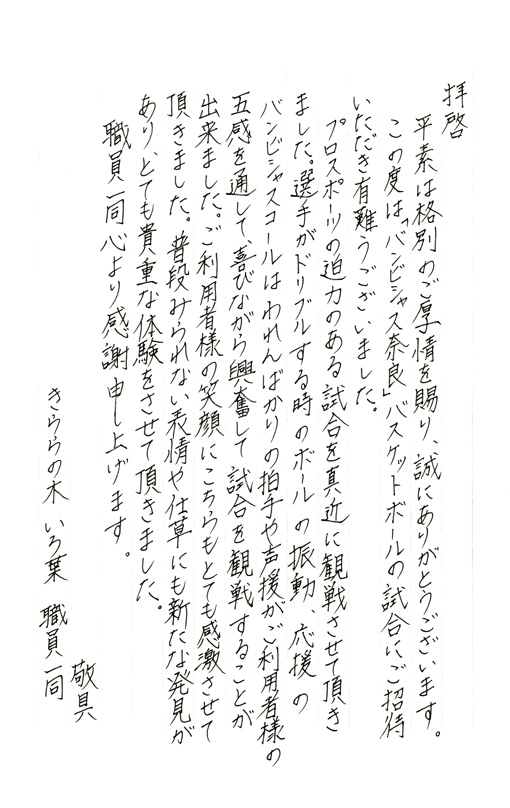 拝啓
平素は格別のご厚情を賜り、誠にありがとうございます。
この度は「バンビシャス奈良」バスケットボールの試合にご招待
いただき有難うございました。
プロスポーツの迫力のある試合を真近に観戦させて頂き
ました。選手がドリブルする時のボールの振動、応援の
バンビシャスコールはわれんばかりの拍手や声援がご利用者様の
五感を通して、喜びながら興奮して試合を観戦することが
出来ました。ご利用者様の笑顔にこちらもとても感激させて
頂きました。普段みられない表情や仕草にも新たな発見が
あり、とても貴重な体験をさせて頂きました。
職員一同心より感謝申し上げます。
敬具
きららの木 いろ葉 職員一同